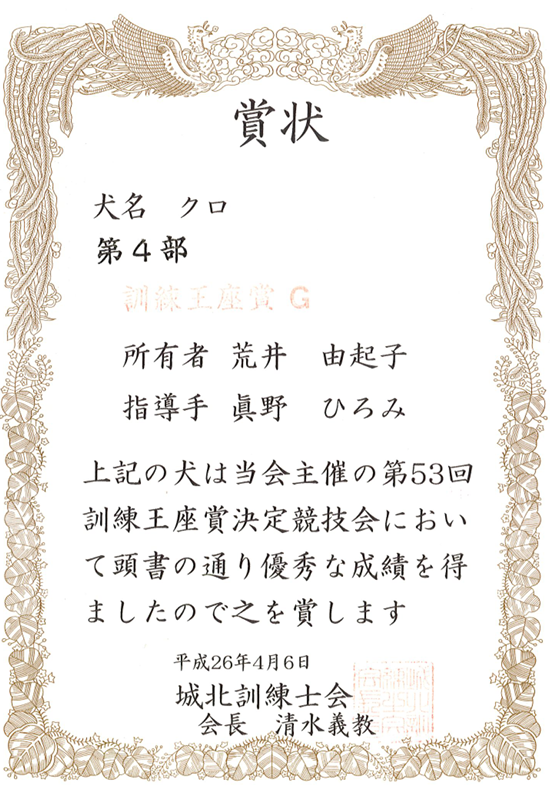 賞状
犬名　クロ
第4部
訓練王座賞 G
所有者　荒井　由起子
指導手　眞野　ひろみ
上記の犬は当会主催の第53回
訓練王座賞決定競技会におい
て頭書の通り優秀な成績を得
ましたので之を賞します
平成26年4月6日
城北訓練士会
会長　清水義教